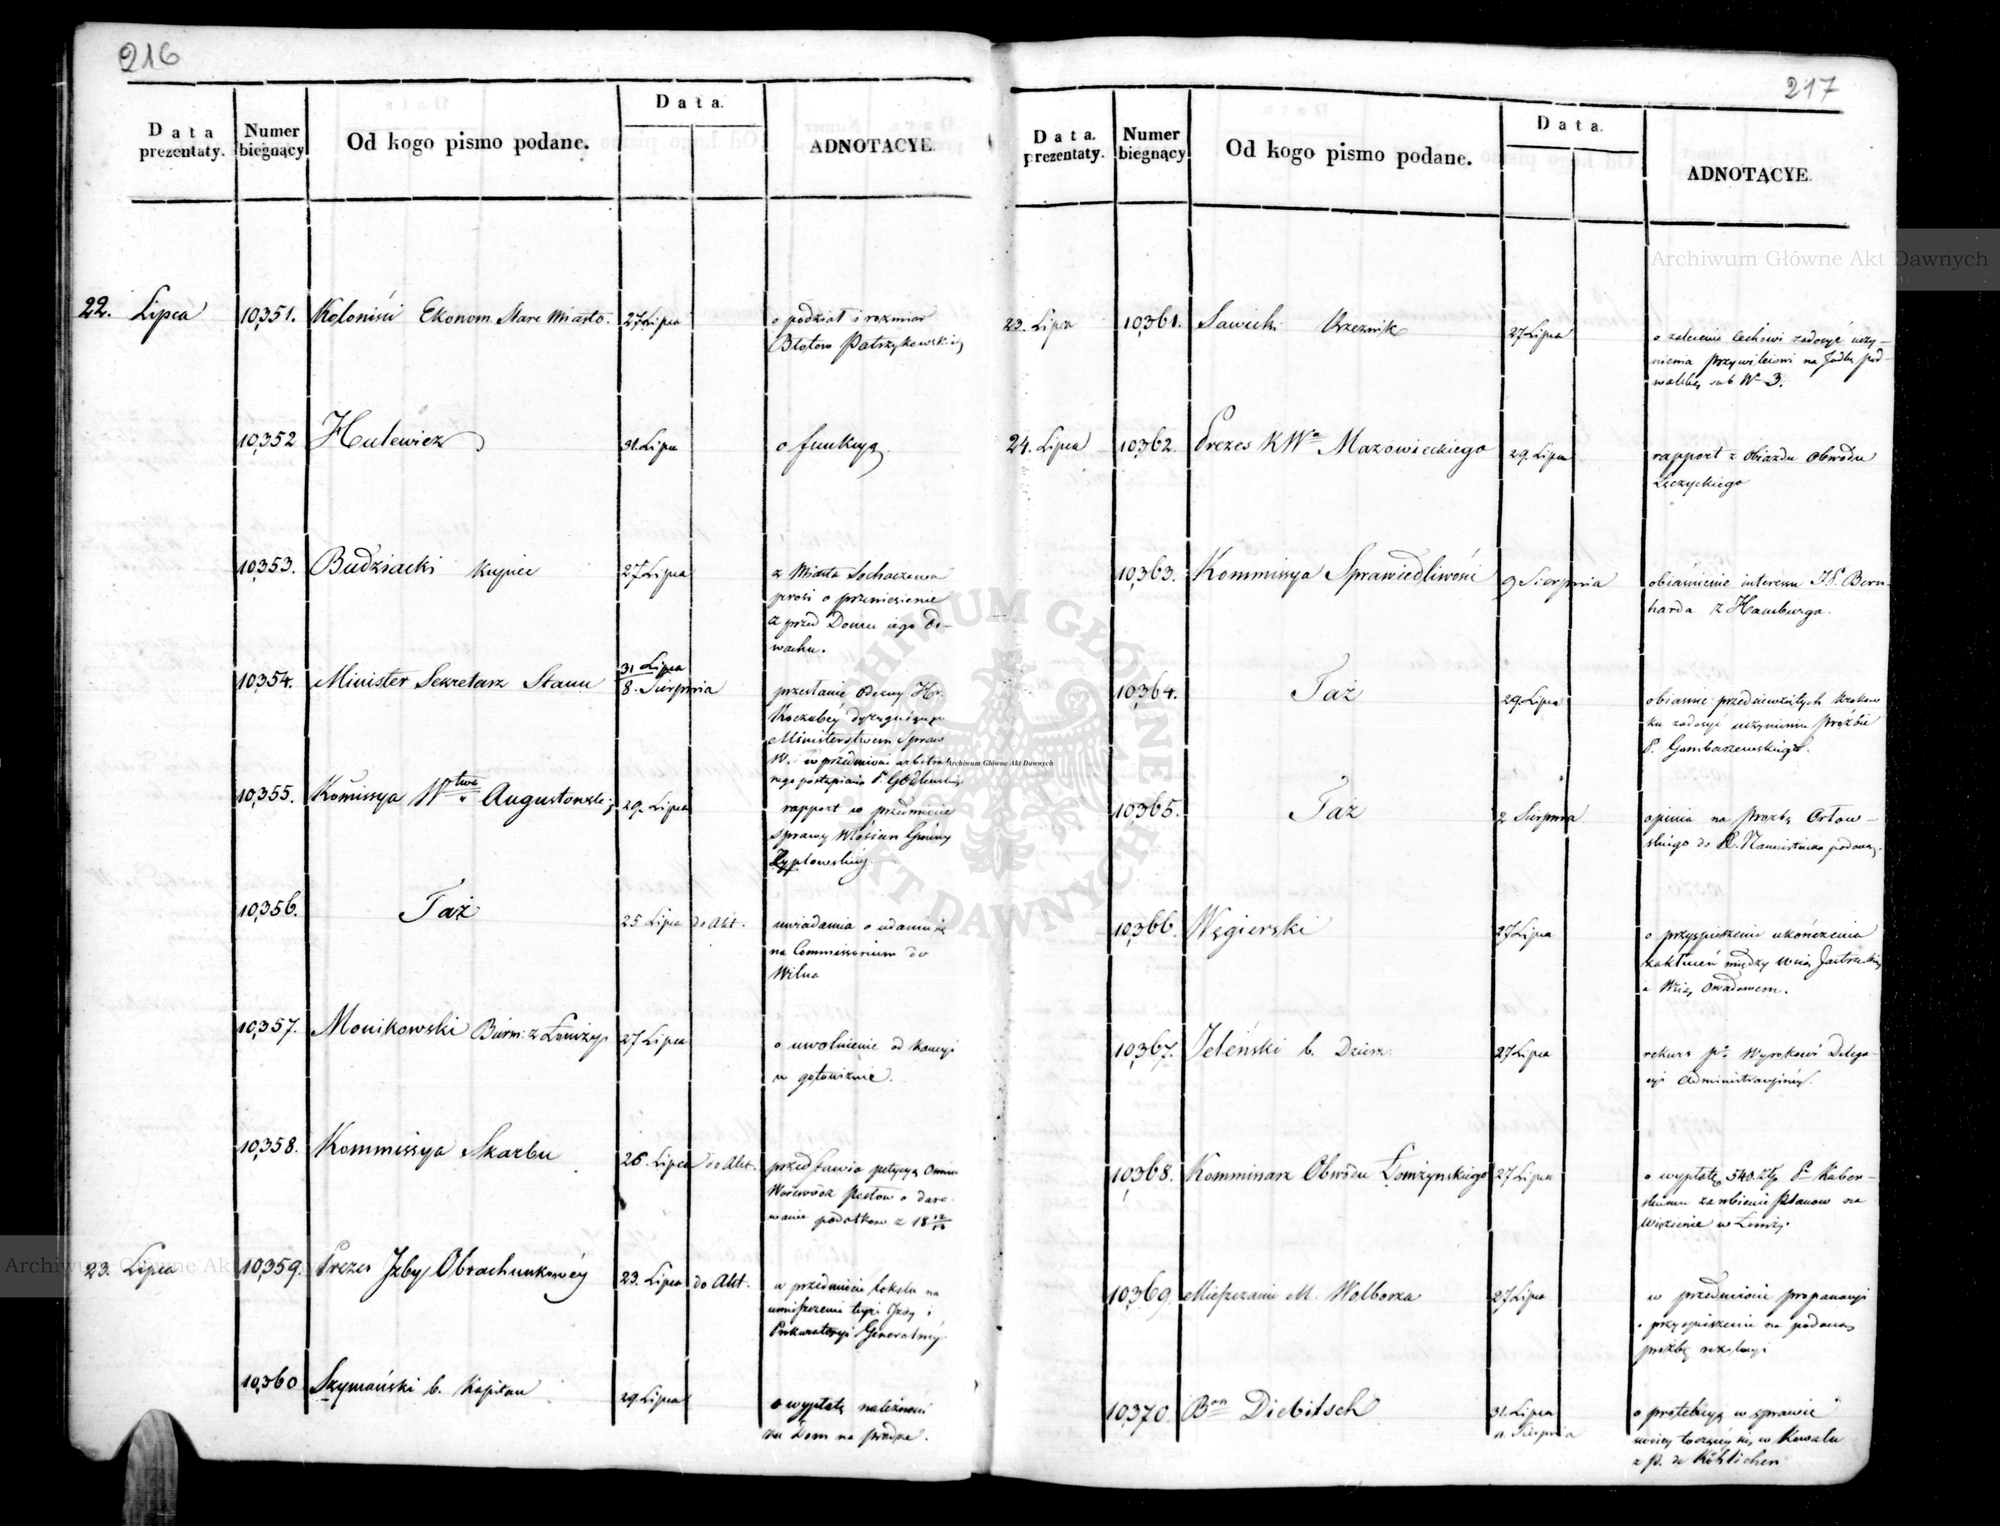 216
Data prezentaty.
Numer biegnący
Od kogo pismo podane.
Data.
ADNOTACYE.
22. Lipca
10,351. Koloniści Ekonom. Stare Miasto. 27 Lipca
o podział i rozmiar
Błotów
10,352 Hulewicz 31. Lipca
o funkcyą.
10,353. Budziacki Kupiec 27 Lipca
z Miasta Sochaczewa
prosi o przeniesienie
z przed Domu iego
10,354. Minister Sekretarz Stanu 31 Lipca
8. Sierpnia
przesłanie odezwy Hr.
Koczubey
Ministerstwem Spraw
W. w przedmiocie
10,355. Kommissya Wtwa Augustowskiego 29. Lipca
rapport w przedmiocie
sprawy Włościan Gminy
10,356. Taż 25 Lipca do Akt.
uwiadamia o udaniu się
na Commissorium do
Wilna
10,357. Monikowski Burm: z Łomży 27 Lipca
o uwolnienie od kaucyi
w gotowiznie.
10,358. Kommissya Skarbu 26. Lipca do Akt.
przedstawia petycyą
o daro-
wanie podatków z 18 12/13
23. Lipca
10,359. Prezes Izby Obrachunkowéy 23. Lipca do Akt.
w przedmiocie lokalu na
umieszczenie teyże Izby i
Prokuratoryi Generalnéy.
10,360 Szymański b. Kapitan 29. Lipca
o wypłatę należności
za Dom na Pradze.
217
Data prezentaty.
Numer biegnący
Od kogo pismo podane.
Data.
ADNOTACYE.
23. Lipca
10,361. Sawicki 27 Lipca
o zalecenie Cechowi zadosyć uczy-
nienia Przywileiowi na
24. Lipca
10,362. Prezes K W Mazowieckiego 29. Lipca
rapport z Obiazdu Obwodu
Łęczyckiego
10,363. Kommissya Sprawiedliwości 9 Sierpnia
obiaśnienie interessu Bern-
harda z Hamburga.
10,364. Taż 29. Lipca
obiaśnie: przedsięwziętych kroków
ku zadosyć uczynieniu Prośbie
P. Gombarzewskiego.
10,365. Taż 2 Sierpnia
opinia na Prośbę Orłow-
skiego do X. Namiestnika podaną.
10,366. Węgierski 27 Lipca
o przyspieszenie ukończenia
między wsią
a Wsią Owadowem.
10,367. Jeleński b. Dzierż. 27 Lipca
rekurs pko Wyrokowi Delega-
cyi Administracyinéy.
10,368. Kommissarz Obwodu Łomżyńskiego 27 Lipca
o wypłatę 540. Złp. P. Haber-
za zrobienie Planów na
Więzienie w Łomży.
10,369. Mieszczanie M. Wolborza 27 Lipca
w przedmiocie propinacyi
o przyspieszenie na podaną
prośbę rezolucyi
10,370. Bon Diebitsch 31. Lipca
Sierpnia
o protekcyą w sprawie
swoiey toczącéy się w Kowalu
z P. de Köhlichen
Archiwum Główne Akt Dawnych
Archiwum Główne Akt Dawnych
Archiwum Główne Akt Dawnych
ARCHIWUM GŁÓWNE AKT DAWNYCH